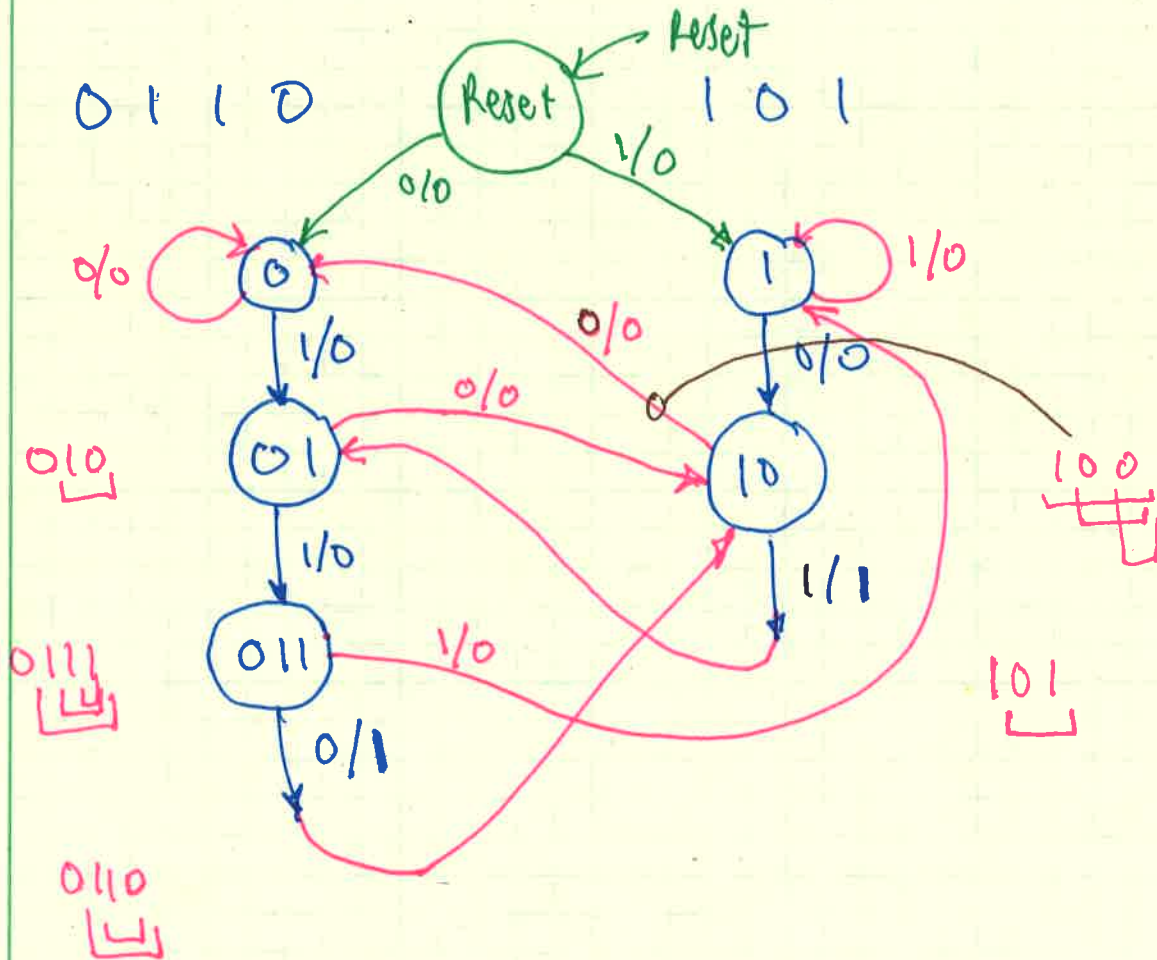 Reset
0 1 1 0
Reset
1 0 1
0/0
1/0
0/0
0
1
1/0
1/0
0/0
0/0
0/0
01
10
010
100
1/0
1/1
011
1/0
0111
101
0/1
0110